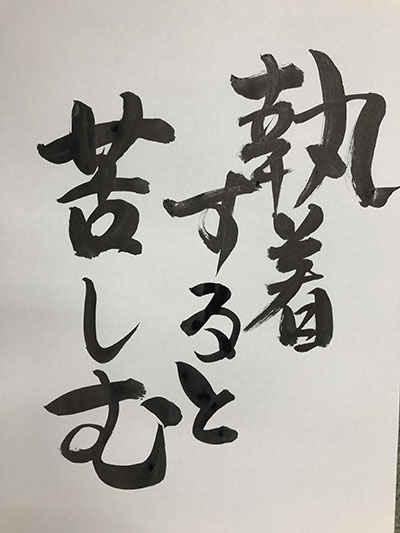 執着
すると
苦しむ